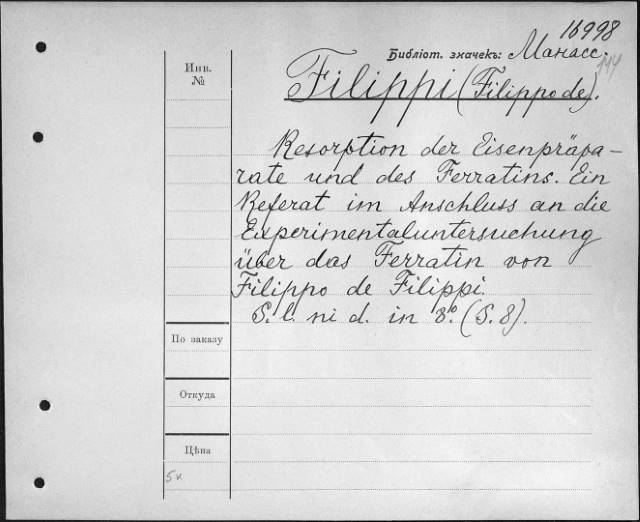 16998
Библіот. значекъ: Манасс.
Инв.
№
Filippi (Filippo de).
Resorption der Eisenpräpa-
rate und des Ferratins. Ein
Referat im Anschluss an die
Experimentaluntersuchung
über das Ferratin von
Filippo de Filippi.
S. l. ni d. in 8º. (S. 8).
По заказу
Откуда
Цѣна
5к